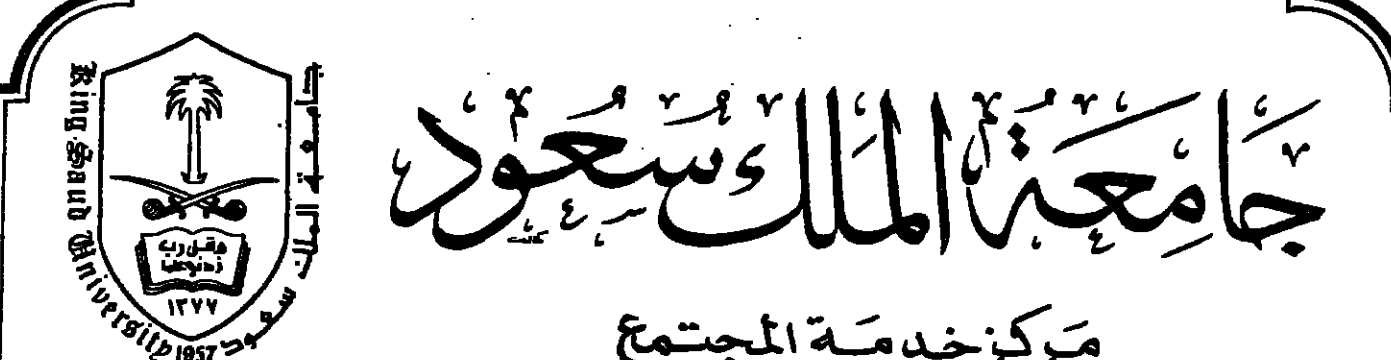 جَامِعَة المَلك سُعُود
مَركز خدمَة المجتمع
King Saud University 1957
جامعة الملك سعود
وقل رب
زدني علما
١٣٧٧